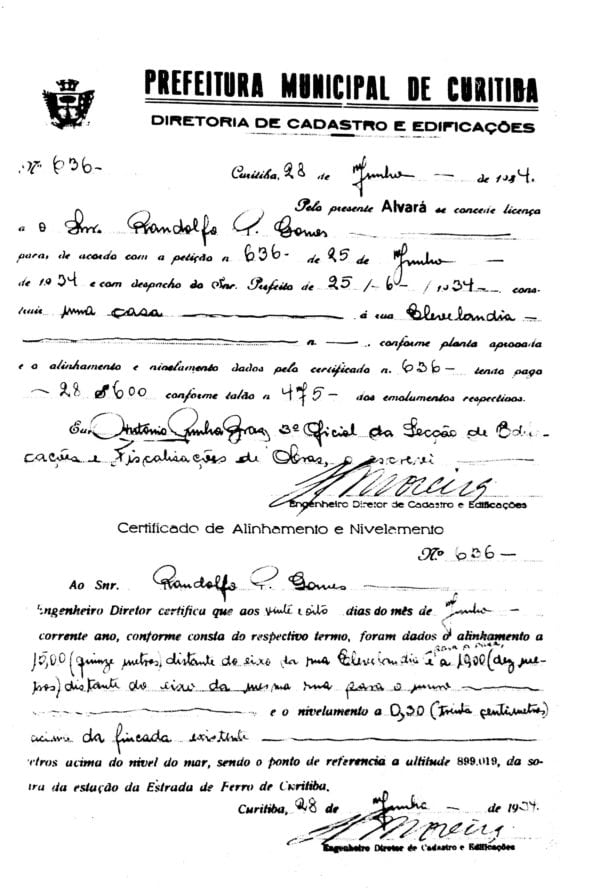 PREFEITURA MUNICIPAL DE CURITIBA
DIRETORIA DE CADASTRO E EDIFICAÇÕES
Nº 636-
Curitiba, 28 de Junho — de 1934.
Pelo presente Alvará se concede licença
a O Snr. Randolfo P. Gomes
para, de acordo com a petição n. 636- de 25 de Junho —
de 1934 e com despacho do Snr. Prefeito de 25 /-6-/ 1934— cons-
truir uma casa — á rua Clevelandia —
— n. —, conforme planta aprovada
e o alinhamento e nivelamento dados pelo certificado n. 636- tendo pago
— 28$600 conforme talão n. 475- dos emolumentos respectivos.
Eu, Antonio 3º Oficial da Secção de Edifi-
cações e Fiscalisações de Obras, o escrevi
Moreira
Engenheiro Diretor de Cadastro e Edificações
Certificado de Alinhamento e Nivelamento
Nº 636-
Ao Snr. Randolfo P. Gomes
Engenheiro Diretor certifica que aos vinte e oito dias do mês de Junho —
corrente ano, conforme consta do respectivo termo, foram dados o alinhamento a
15,00 (quinze metros) distante do eixo da rua Clevelandia para a casa, e a 10,00 (dez me-
tros) distante do eixo da mesma rua para o muro —
— e o nivelamento a 0,30 (trinta centimetros)
acima da fincada existente —
etros acima do nivel do mar, sendo o ponto de referencia a altitude 899,019, da so-
ira da estação da Estrada de Ferro de Curitiba.
Curitiba, 28 de Junho — de 1934.
Moreira
Engenheiro Diretor de Cadastro e Edificações